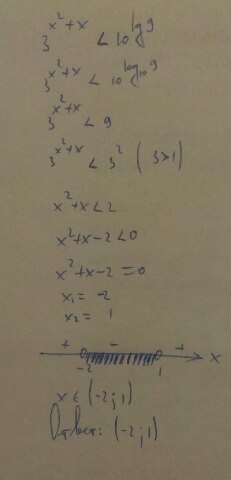 3^(x²+x) < 10^(lg 9)
3^(x²+x) < 10^(log₁₀ 9)
3^(x²+x) < 9
3^(x²+x) < 3² (3>1)
x²+x<2
x²+x-2<0
x²+x-2=0
x₁= -2
x₂= 1
+ - +
-2 1 x
x∈(-2;1)
Ответ: (-2;1)